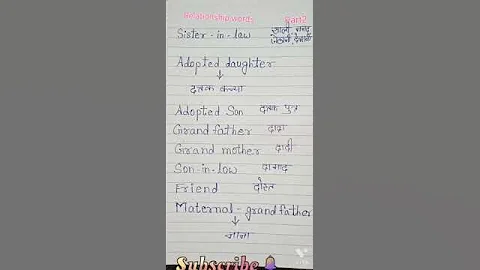 Relationship words Part2
Sister-in-law साली, ननद
जेठानी, देवरानी
Adopted daughter
↓
दत्तक कन्या
Adopted Son दत्तक पुत्र
Grand father दादा
Grand mother दादी
Son-in-low दामाद
Friend दोस्त
Maternal-grandfather
↓
नाना
Subscribe